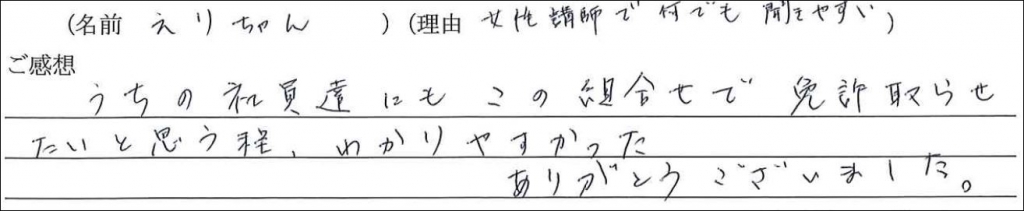 (名前 えりちゃん ) (理由 女性講師で何でも聞きやすい )
ご感想
うちの社員達にもこの組合せで免許取らせ
たいと思う程、わかりやすかった
ありがとうございました。